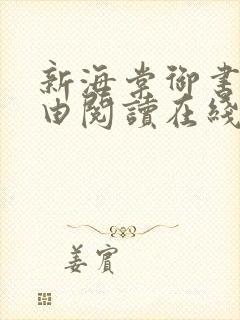 新海棠御書
由閱讀在綫
姜賓